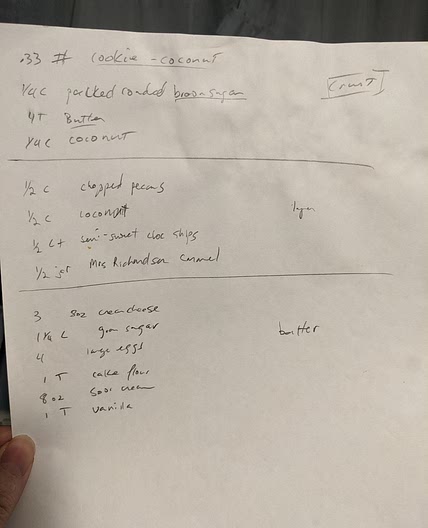 .33 # cookie - coconut
1/4 c packed rounded brown sugar [crust]
4T Butter
1/4 c coconut
1/2 c chopped pecans
1/2 c coconut layer
1/2 c+ semi-sweet choc chips
1/2 jar Mrs Richardson Caramel
3 8oz cream cheese
1 1/4 c gran sugar batter
4 large eggs
1 T cake flour
8 oz sour cream
1 T vanilla